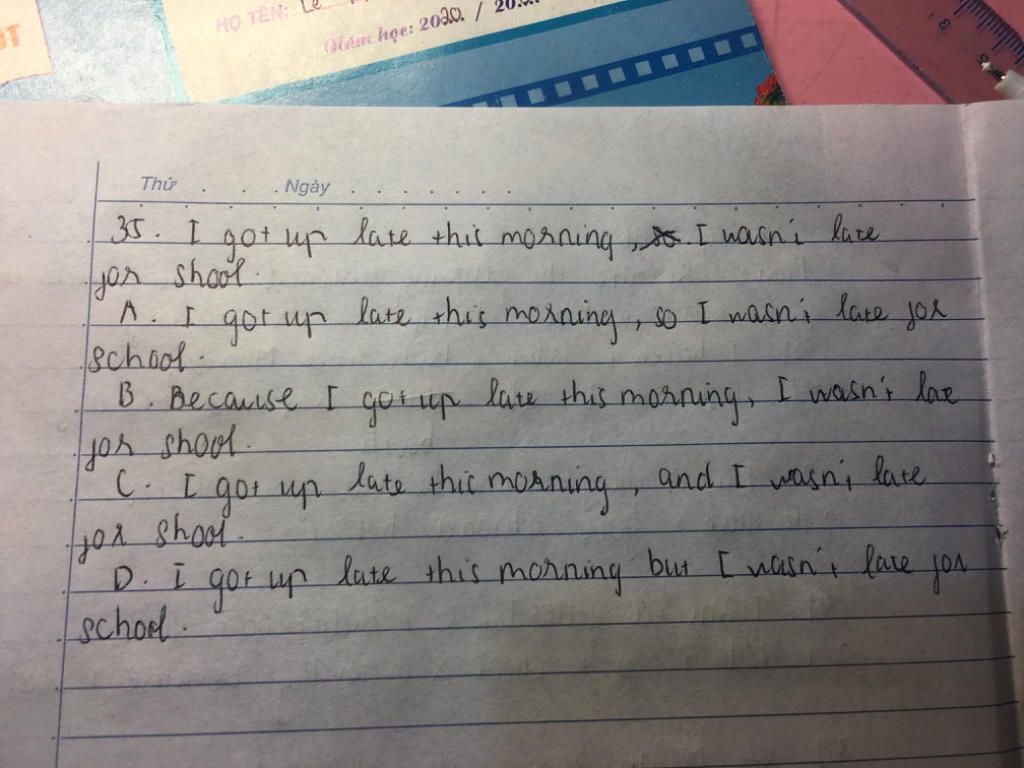 HỌ TÊN: Lê
Năm học: 2020 / 20
Thứ . . . Ngày . . . . . . .
35. I got up late this morning, I wasn't late
for shool.
A. I got up late this morning, so I wasn't late for
school.
B. Because I got up late this morning, I wasn't late
for shool.
C. I got up late this morning, and I wasn't late
for shool.
D. I got up late this morning but I wasn't late for
school.